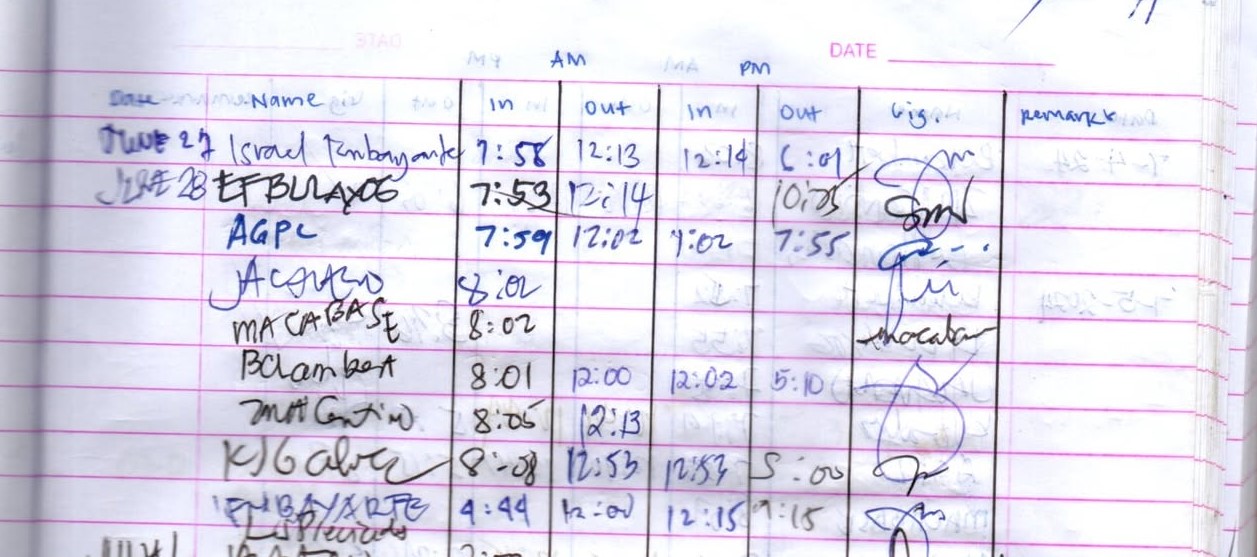 DATE
AM PM
Date Name In Out In Out Sig. Remarks
June 27 Israel Embayarte 7:58 12:13 12:14 6:01
June 28 7:53 12:14 10:05
AGPC 7:59 12:02 1:02 7:55
8:02
MACABASE 8:02
BClambert 8:01 12:00 12:02 5:10
8:05 12:13
KJGalvez 8:08 12:53 12:53 5:00
EMBAYARTE 4:44 12:00 12:15 9:15